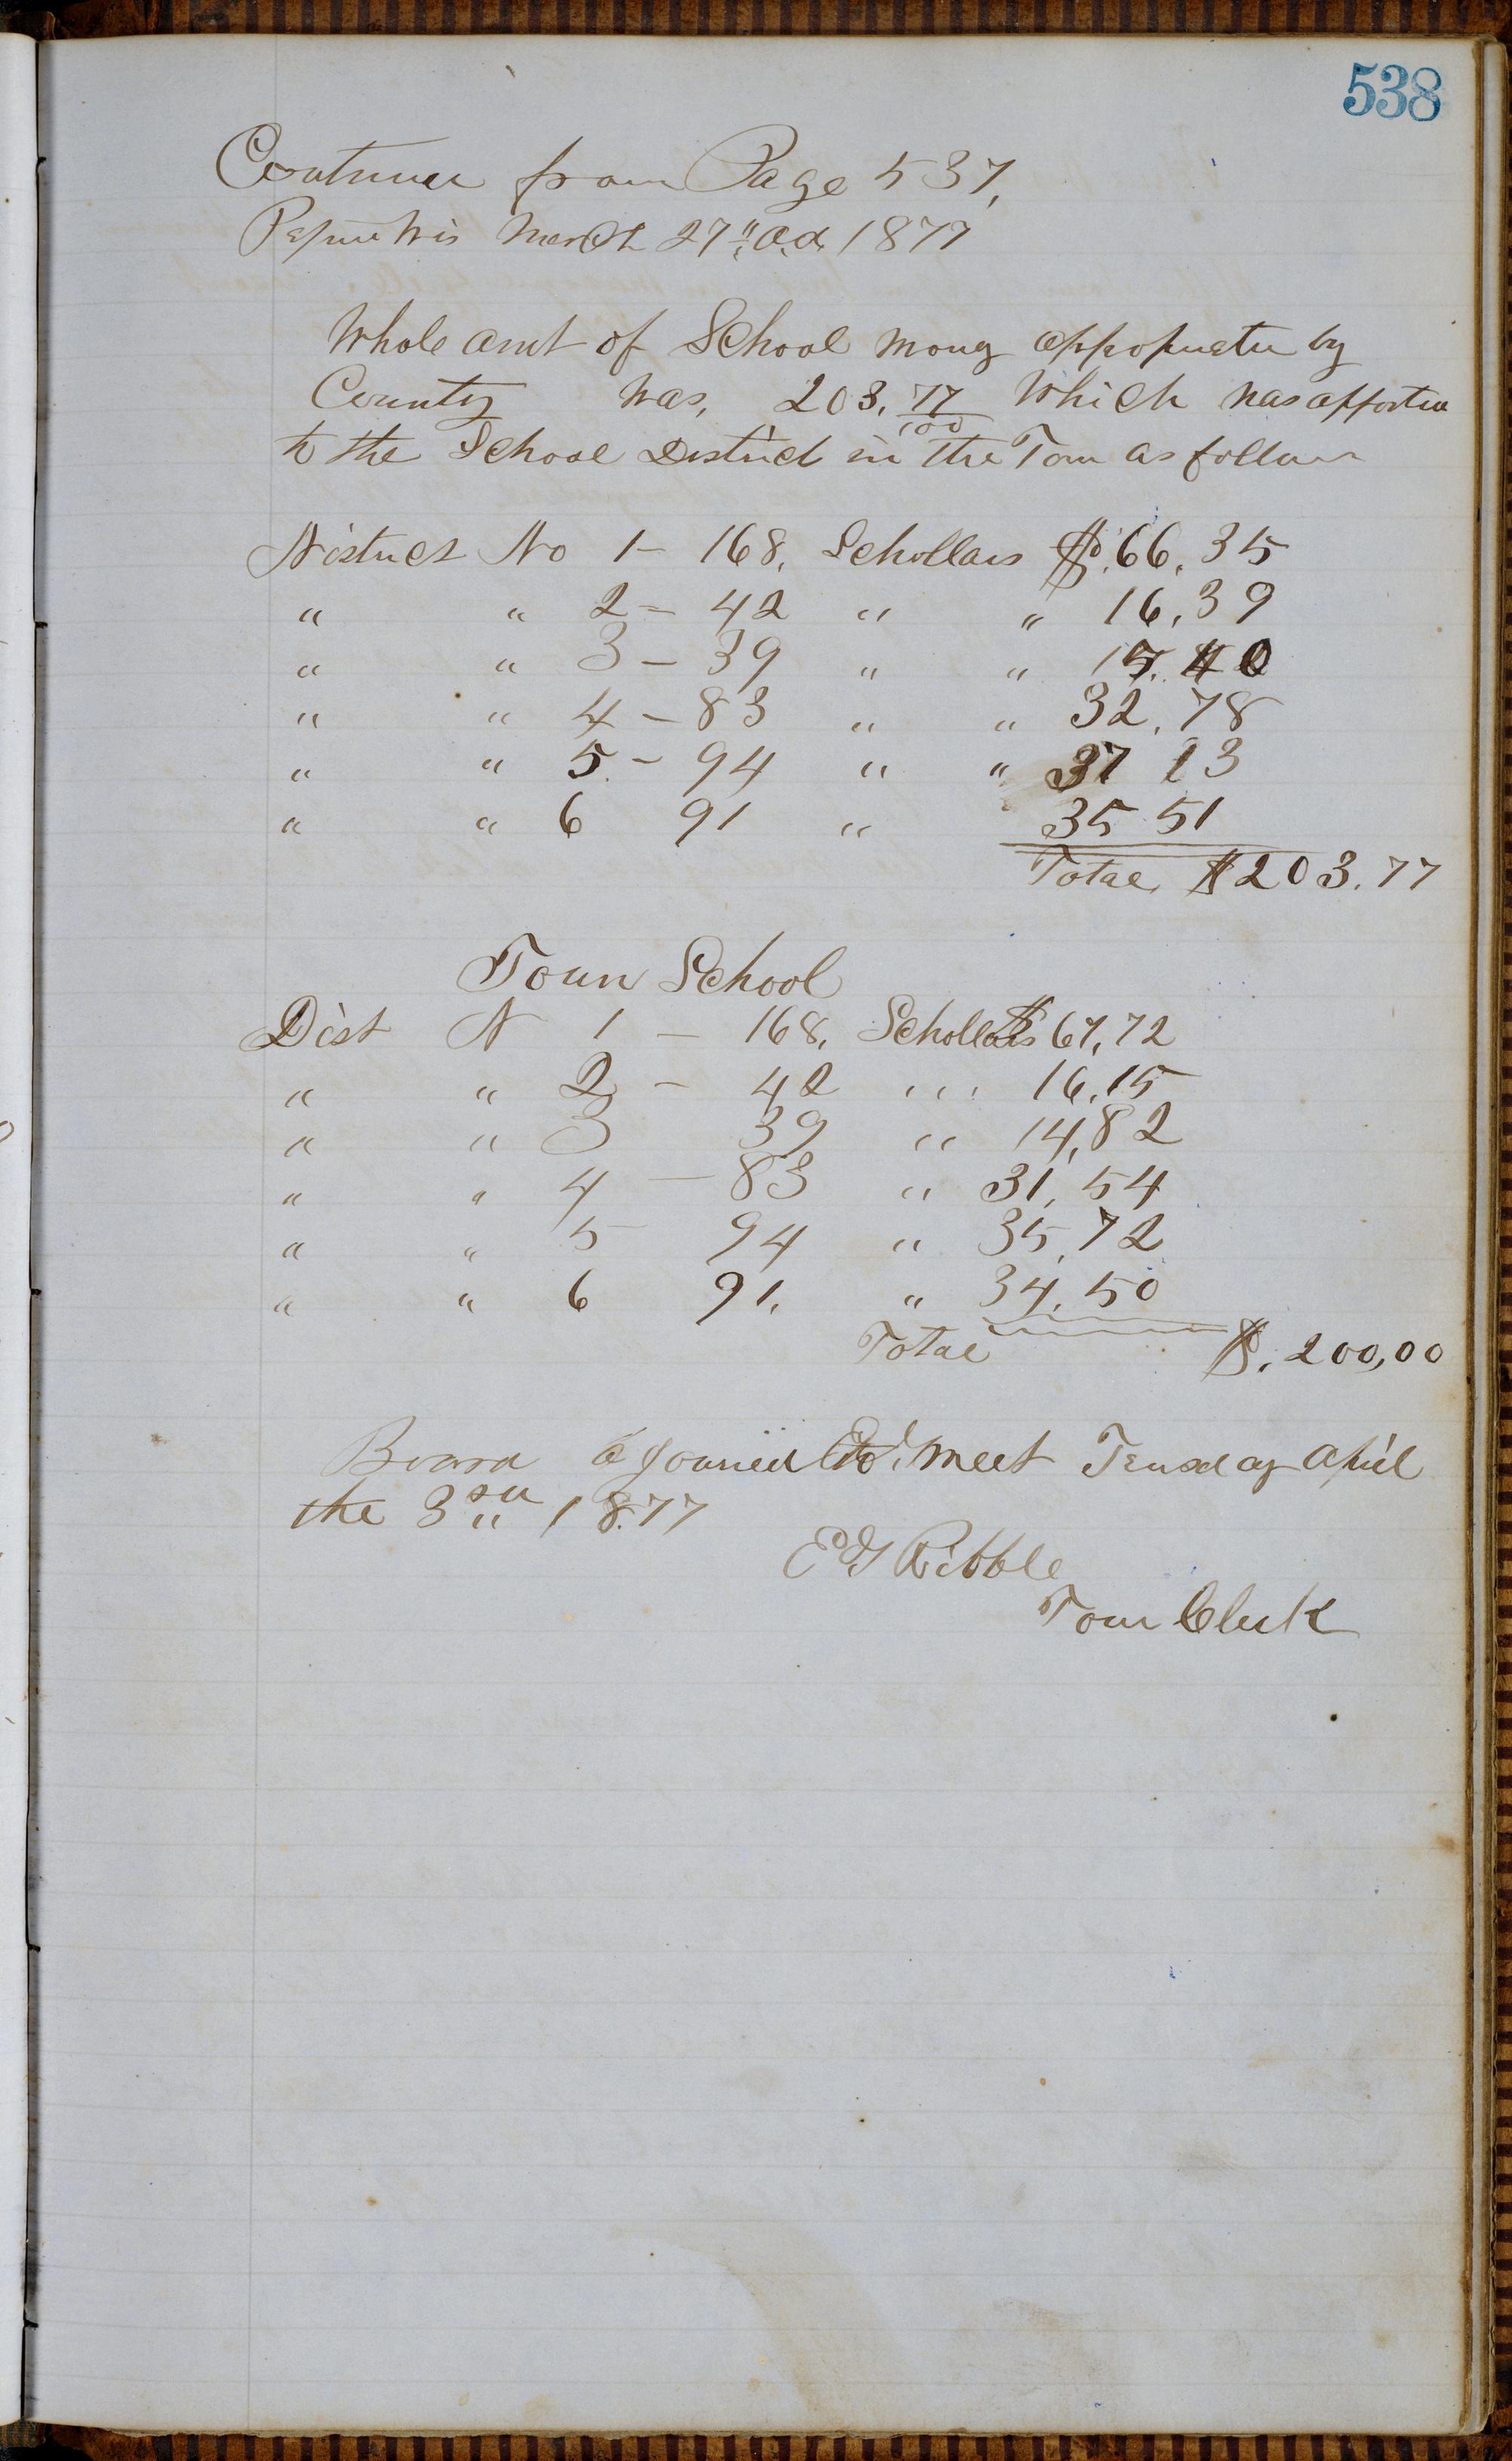 538
Continued from Page 537,
March 27" A.D. 1877
Whole amt of School Mony appropriated by
County was, 203, 77/100 Which was apported
to the School District in the Town as follows
District No 1 — 168, Schollars $66,35
" " 2 — 42 " " 16,39
" " 3 — 39 " " 15.40
" " 4 — 83 " " 32,78
" " 5 — 94 " " 37 13
" " 6 91 " 35 51
Total $203.77
Town School
Dist N 1 — 168, Schollars $67,72
" " 2 — 42 " 16,15
" " 3 39 " 14,82
" " 4 — 83 " 31,54
" " 5 — 94 " 35,72
" " 6 91, " 34,50
Total $200,00
Board ajourned to meet Teusday April
the 3rd 1877
Ribble
Town Clerk